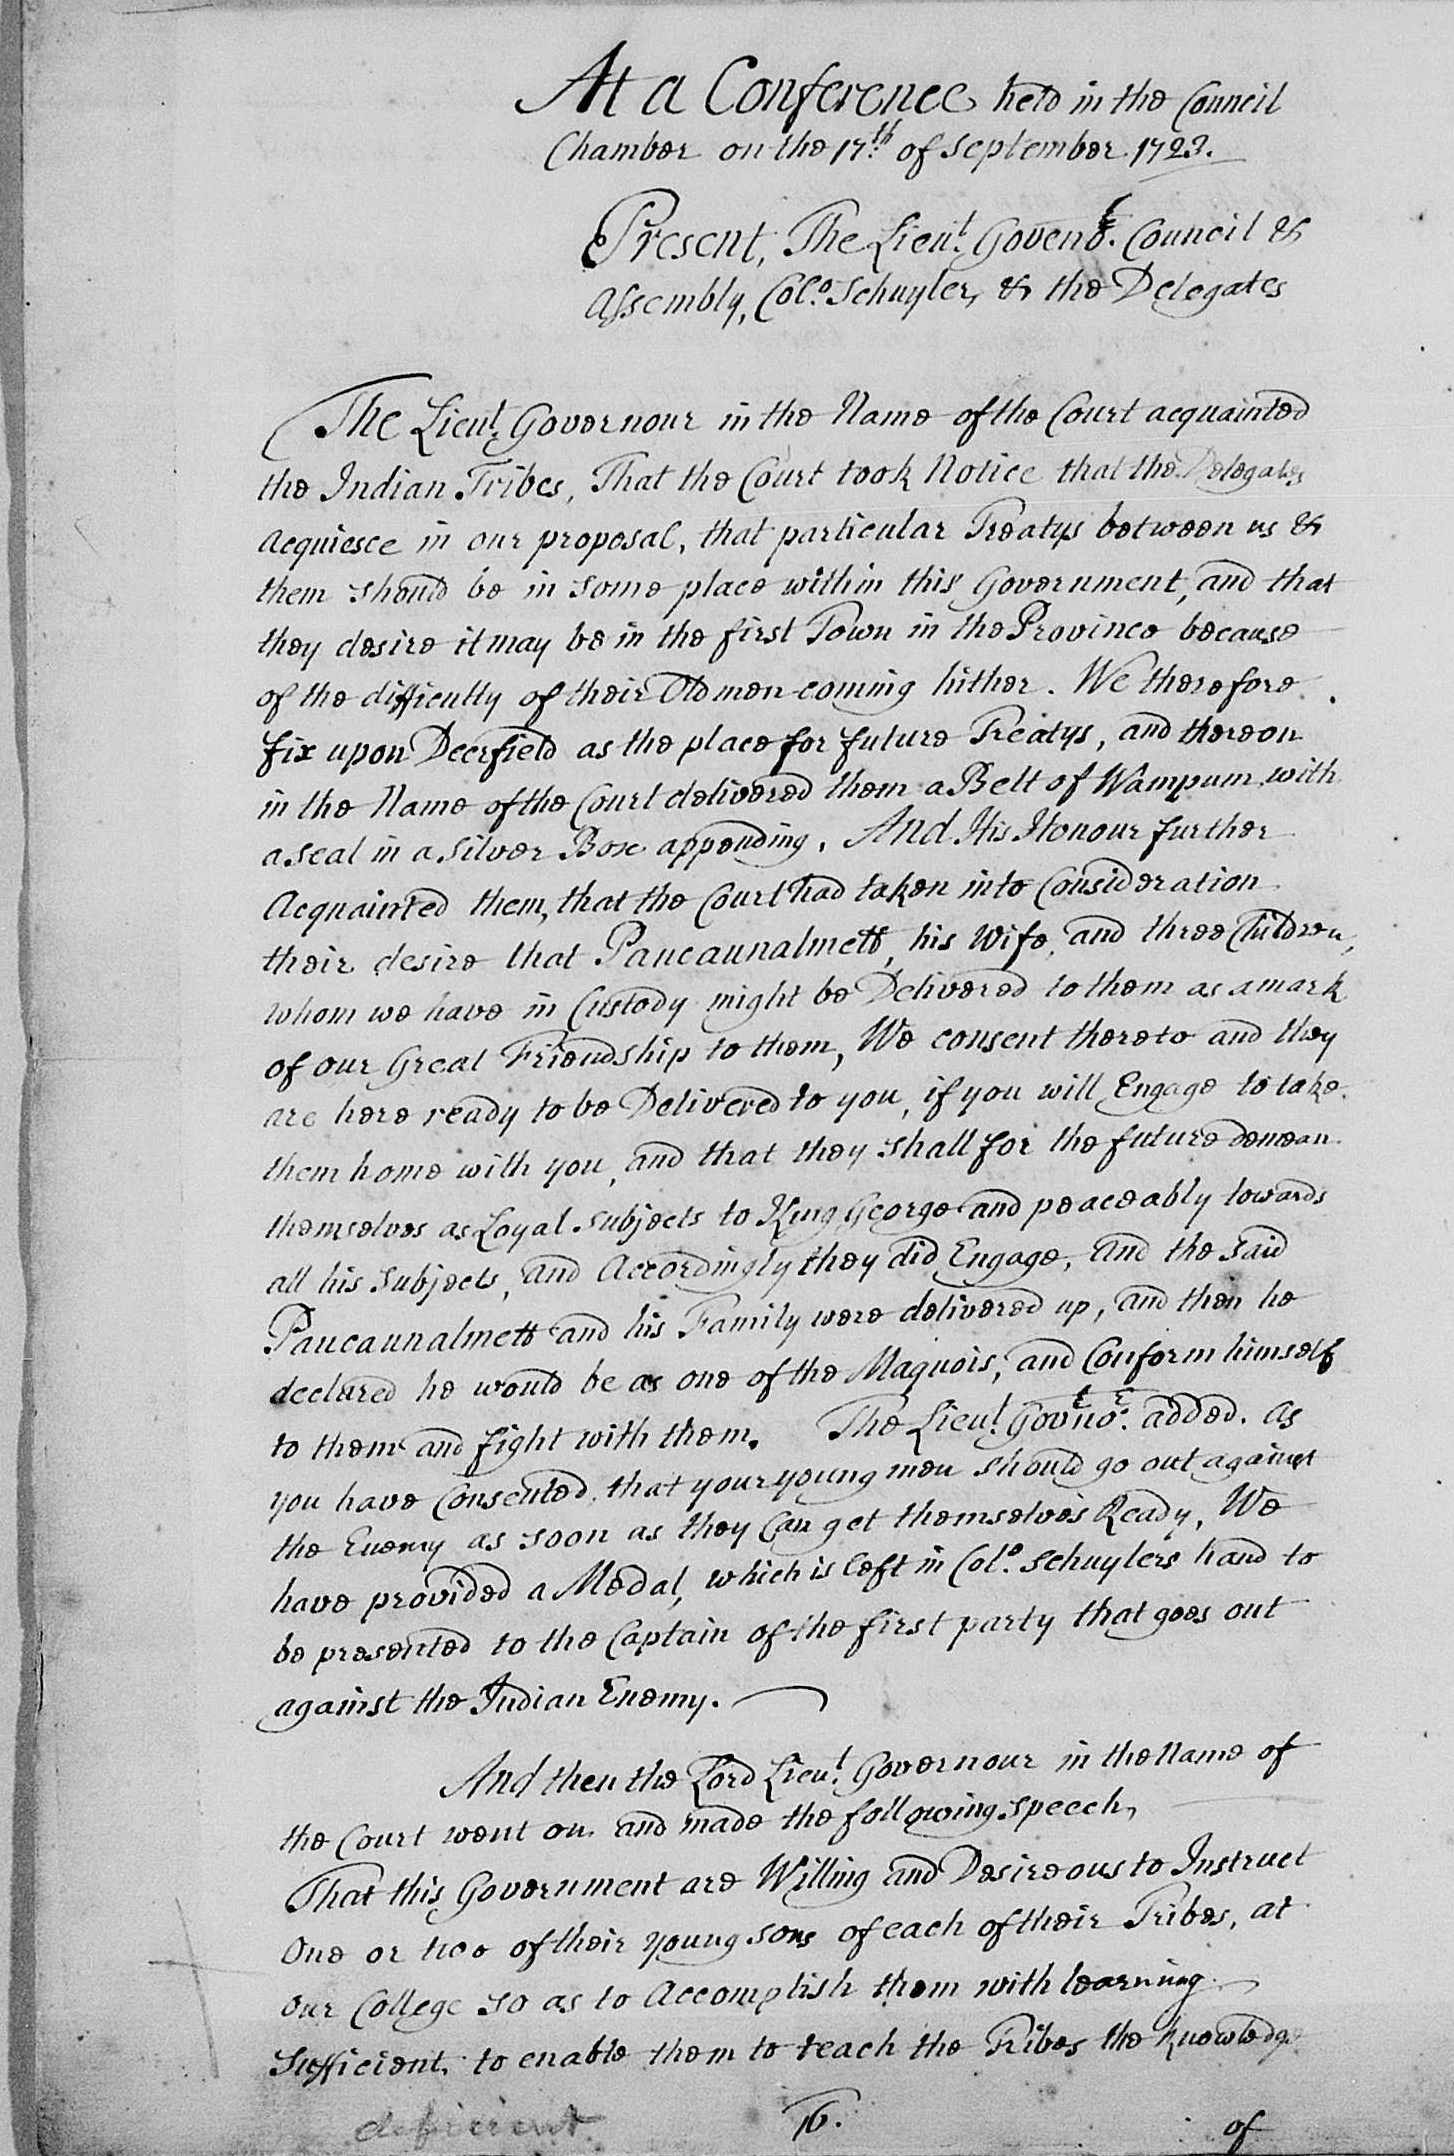 At a Conference held in the Council
Chamber on the 17th of September 1723.
Present, The Lieut. Govenor. Council &
Assembly, Colo. Schuyler, & the Delegates
The Lieut. Governour in the Name of the Court acquainted
the Indian Tribes, That the Court took Notice that the Delegates
Acquiesce in our proposal, that particular Treatys between us &
them should be in some place within this Government, and that
they desire it may be in the first Town in the Province because
of the difficulty of their Old men coming hither. We therefore
fix upon Deerfield as the place for future Treatys, and thereon
in the Name of the Court delivered them a Belt of Wampum with
a seal in a Silver Box appending, And His Honour further
Acquainted them, that the Court had taken into Consideration
their desire that Paucaunalmett, his Wife, and three Children,
whom we have in Custody might be Delivered to them as a mark
of our Great Friendship to them, We consent thereto and they
are here ready to be Delivered to you, if you will Engage to take
them home with you, and that they shall for the future demean
themselves as Loyal Subjects to King George and peaceably towards
all his Subjects, and Accordingly they did Engage, and the said
Paucaunalmett and his Family were delivered up, and then he
declared he would be as one of the Maquois, and Conform himself
to them and fight with them. The Lieut. Govenor. added. As
you have Consented, that your young men should go out against
the Enemy as soon as they Can get themselves Ready, We
have provided a Medal, which is left in Colo. Schuylers hand to
be presented to the Captain of the first party that goes out
against the Indian Enemy.
And then the Lord Lieut. Governour in the Name of
the Court went on and made the following Speech,
That this Government are Willing and Desireous to Instruct
One or two of their young sons of each of their Tribes, at
Our College so as to Accomplish them with learning
Sufficient, to enable them to teach the Tribes the knowledge
deficient.
16.
of